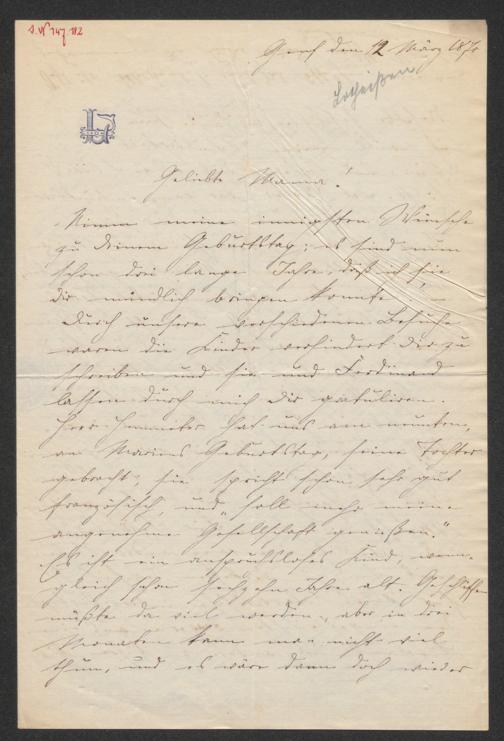 Genf den 12 März 1870
Lotheißen
Geliebte Mama!
Nimm meine innigsten Wünsche
zu Deinem Geburtstag; es sind nun
schon drei lange Jahre, daß ich sie
Dir mündlich bringen konnte. –
Durch unsere verschiedenen Besuche
waren die Kinder verhindert Dir zu
schreiben und sie und Ferdinand
lassen durch mich Dir gratuliren.
Herr hat uns am neunten,
an Mariens Geburtstag, seine Tochter
gebracht; sie spricht schon sehr gut
französisch, und „soll mehr meine
angenehme Gesellschaft genießen."
Es ist ein anspruchsloses Kind, wenn-
gleich schon sechzehn Jahre alt.
müßte da viel werden, aber in drei
Monaten kann man nicht viel
thun, und es wäre dann doch wieder